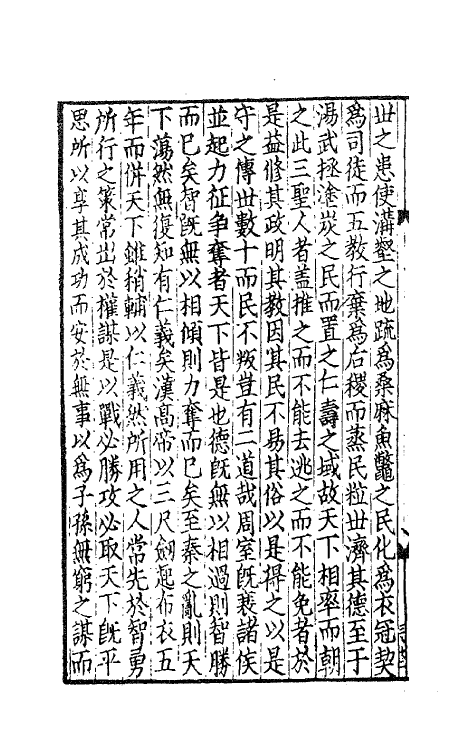 丗之患使溝壑之地䟽爲桑麻魚鼈之民化爲衣冠契
爲司徒而五教行棄爲后稷而蒸民粒丗濟其德至于
湯武拯塗炭之民而置之仁壽之域故天下相率而朝
之此三聖人者蓋推之而不能去逃之而不能免者於
是益修其政明其教因其民不易其俗以是得之以是
守之傳丗數十而民不叛豈有二道哉周室旣衰諸侯
並起力征争奪者天下皆是也德旣無以相過則智勝
而已矣智旣無以相傾則力奪而已矣至秦之亂則天
下蕩然無復知有仁義矣漢髙帝以三尺劒起布衣五
年而併天下雖稍輔以仁義然所用之人常先於智勇
所行之策常出於權謀是以戰必勝攻必取天下旣平
思所以享其成功而安於無事以爲子孫無窮之謀而